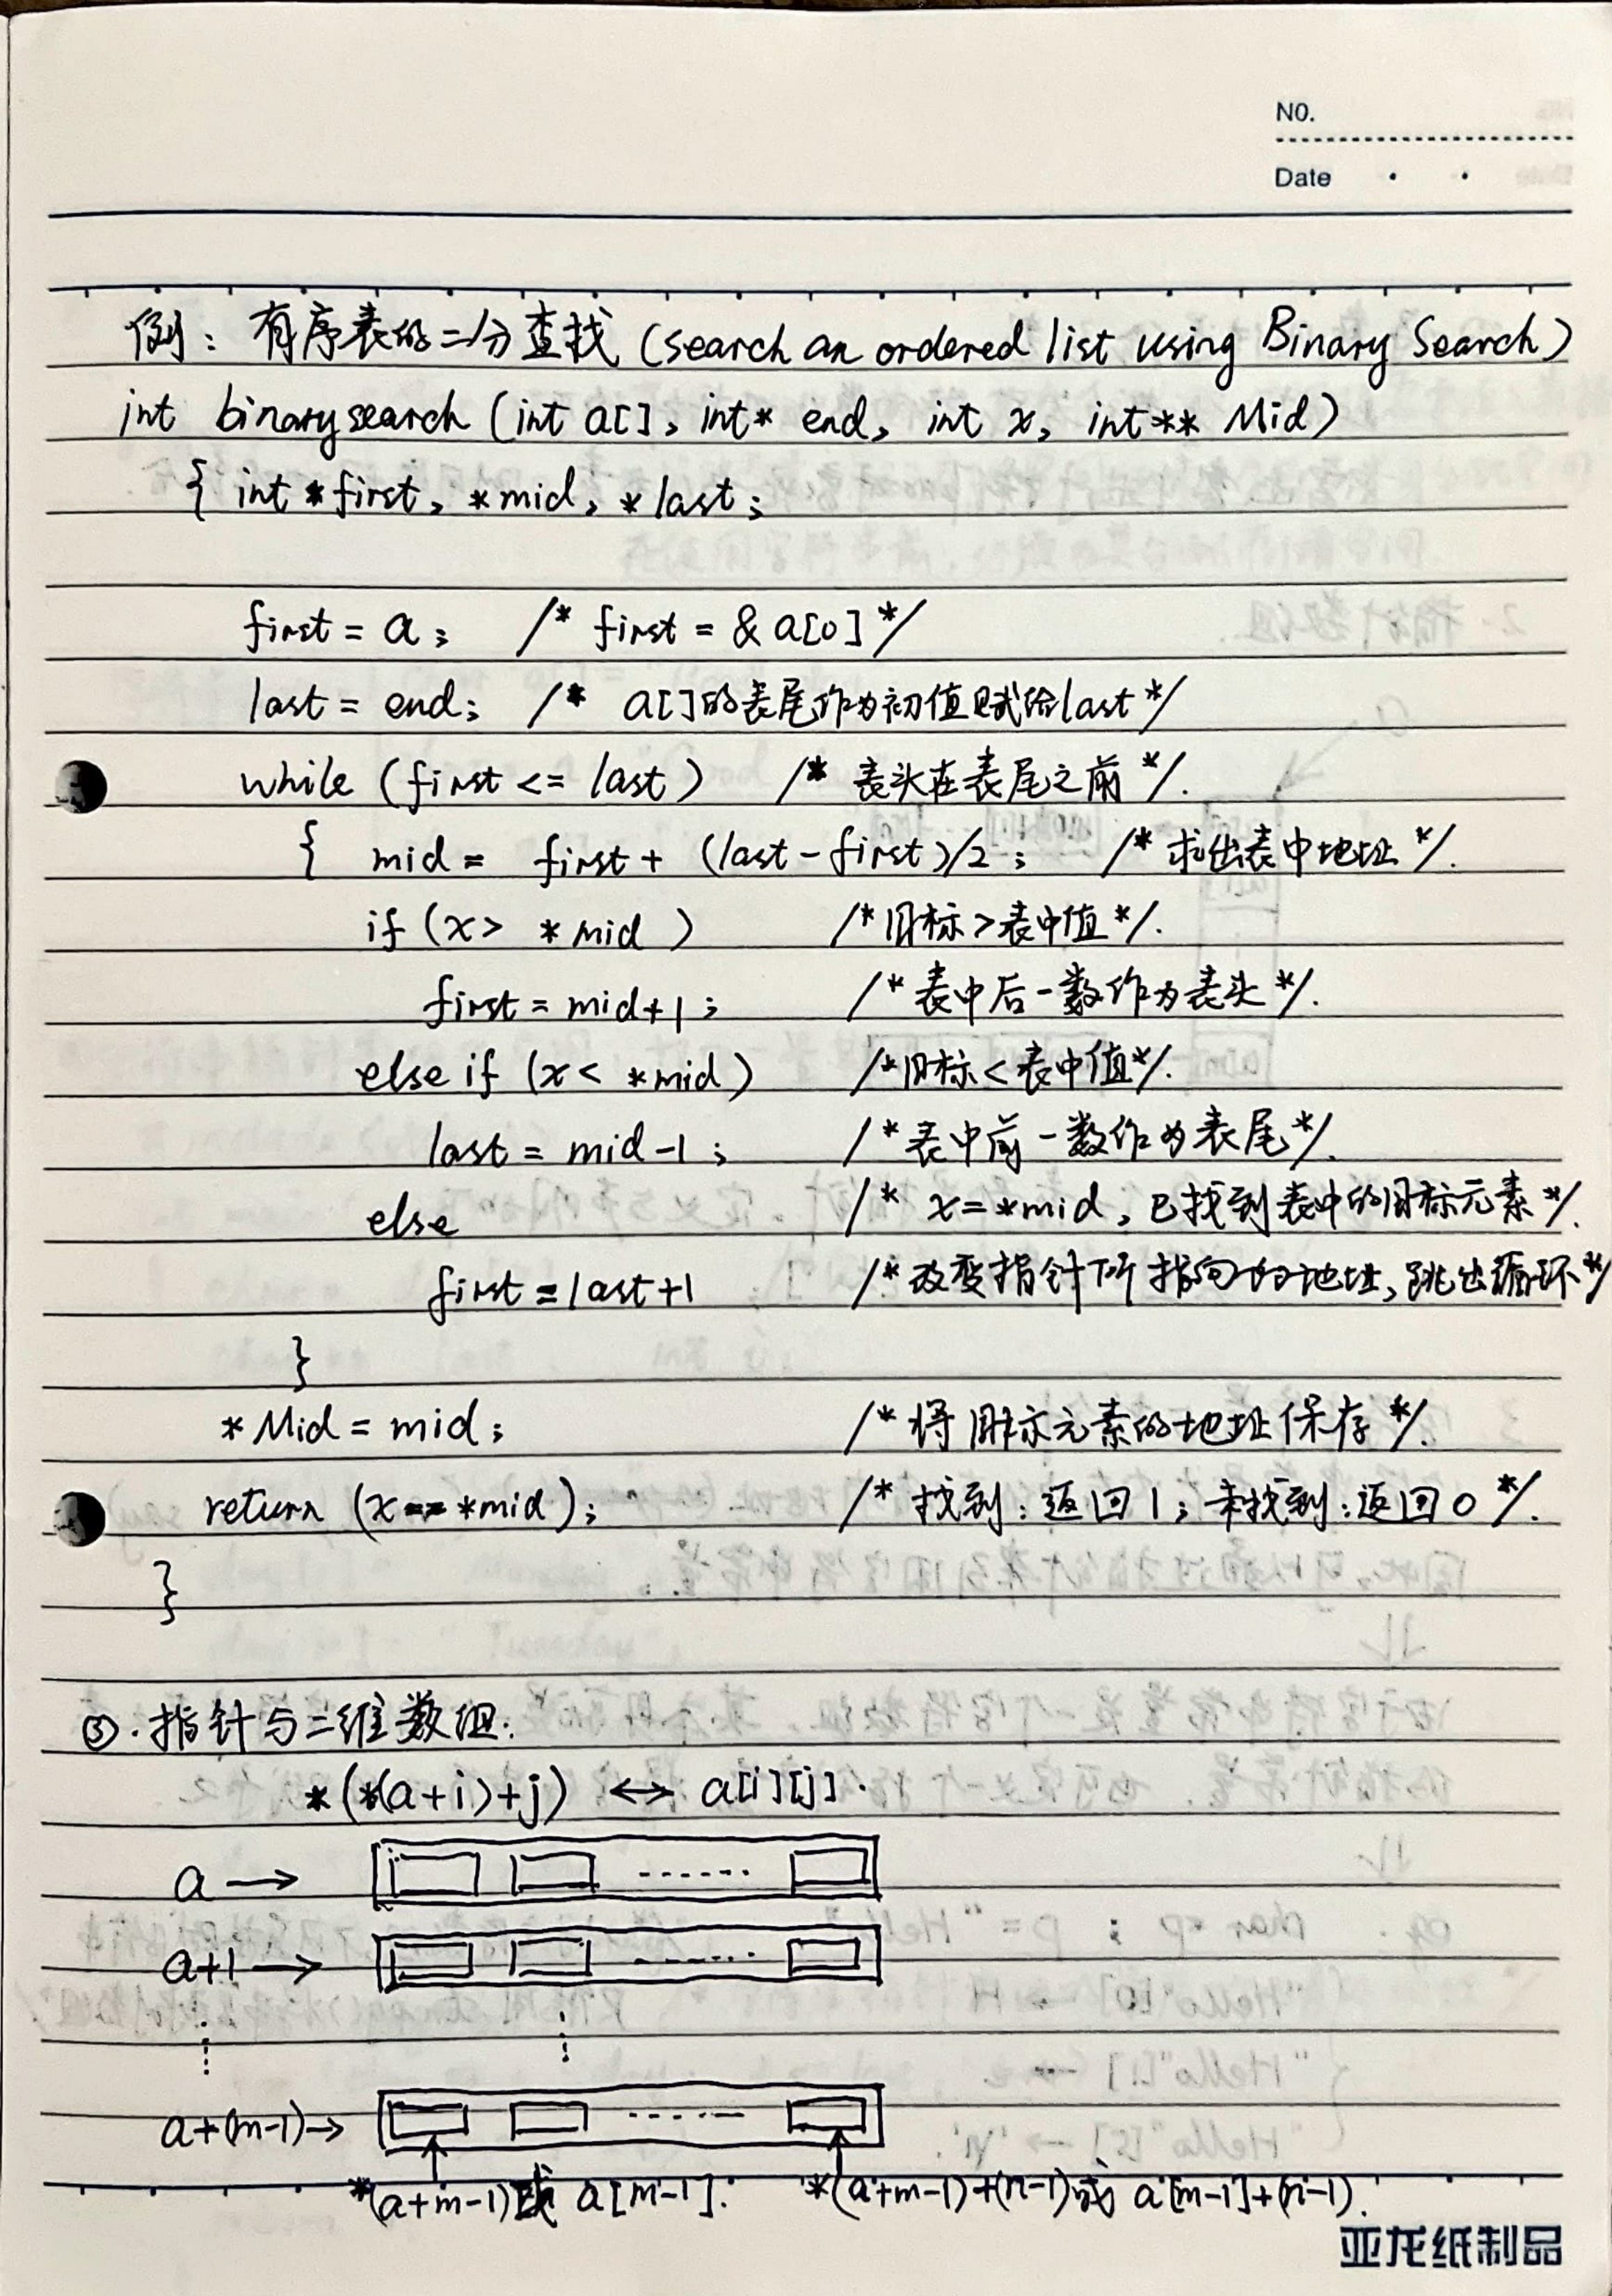 NO.
Date
例：有序表的二分查找 (search an ordered list using Binary Search)
int binarysearch (int a[], int* end, int x, int** Mid)
{ int *first, *mid, *last;
first = a; /* first = & a[0] */
last = end; /* a[]的表尾作为初值赋给last */
while (first <= last) /* 表头在表尾之前 */.
{ mid = first + (last - first)/2; /* 求出表中地址 */.
if (x > *mid) /* 目标>表中值 */.
first = mid+1; /* 表中后一数作为表头 */.
else if (x < *mid) /* 目标<表中值 */.
last = mid-1; /* 表中前一数作为表尾 */.
else /* x=*mid, 已找到表中的目标元素 */.
first = last+1 /* 改变指针所指向的地址, 跳出循环 */
}
*Mid = mid; /* 将目标元素的地址保存 */.
return (x == *mid); /* 找到：返回1; 未找到：返回0 */.
}
③. 指针与二维数组:
*(*(a+i)+j) ↔ a[i][j].
a → ......
a+1 → ......
a+(m-1) → ......
*(a+m-1)或 a[m-1]. *(a+m-1)+(n-1)或 a[m-1]+(n-1).
亚龙纸制品